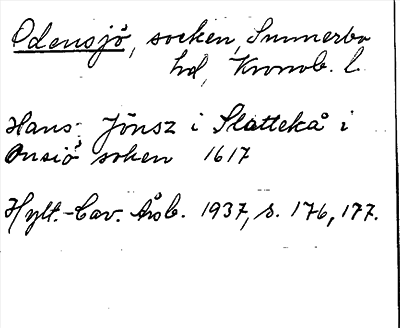 Odensjö, socken, Sunnerbo
hd, Kronob. l.
Hans Jönsz i Slättekå i
Onsiö soken 1617
Hylt.-Cav. Åsb. 1937, s. 176, 177.